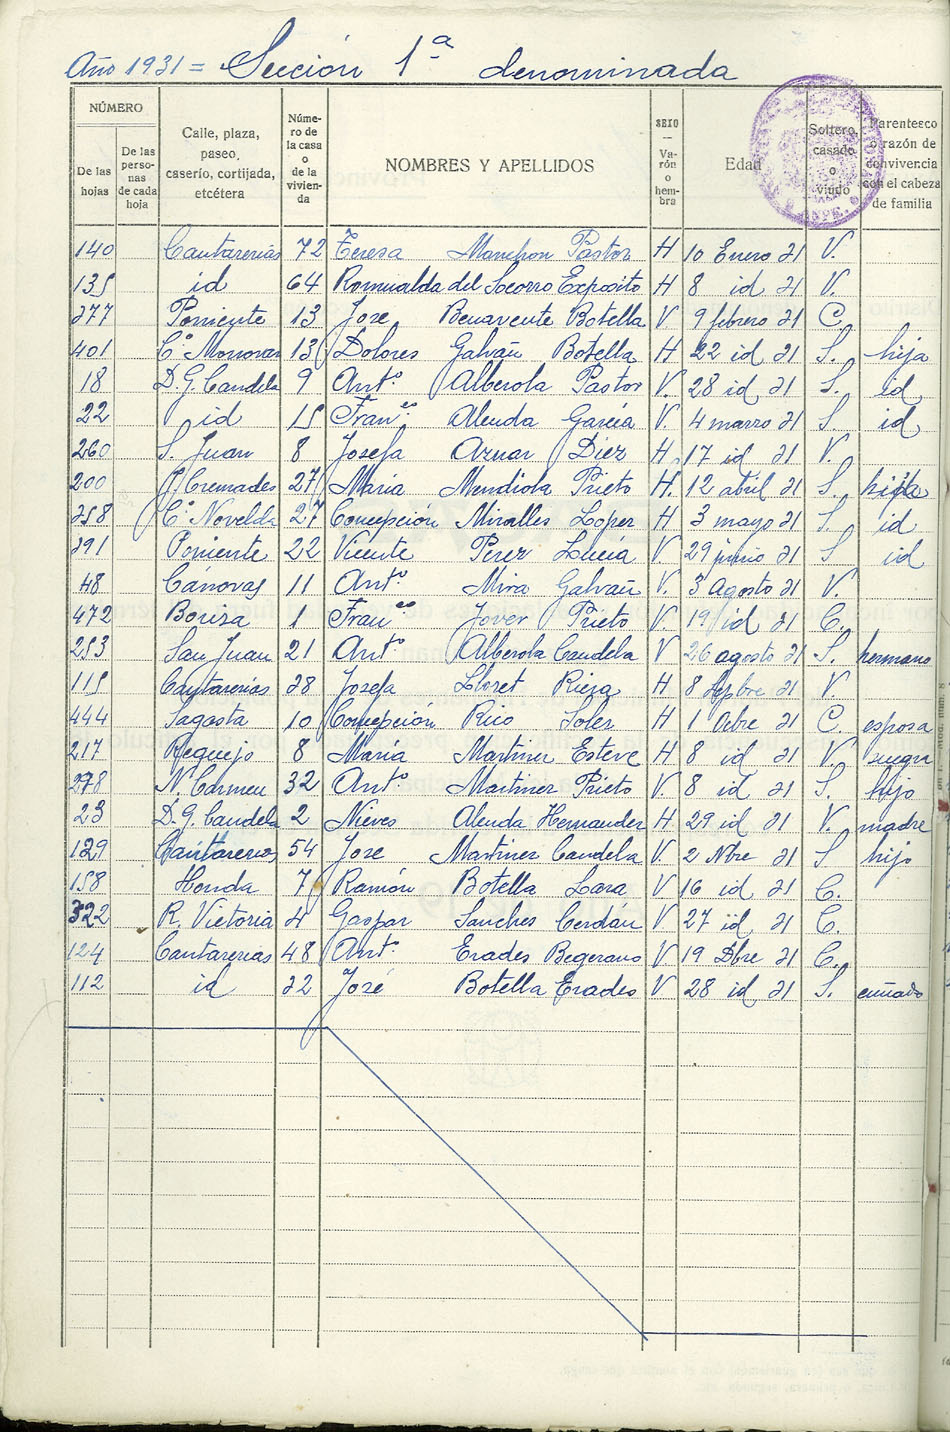 Año 1931 = Sección 1ª denominada
NÚMERO
De las hojas
De las personas de cada hoja
Calle, plaza, paseo, caserío, cortijada, etcétera
Número de la casa o de la vivienda
NOMBRES Y APELLIDOS
SEXO — Varón o hembra
Edad
Soltero, casado o viudo
Parentesco o razón de convivencia con el cabeza de familia
140 Cantarerias 72 Teresa Manchon Pastor H 10 Enero 31 V.
135 id 64 Romualda del Socorro Exposito H 8 id 31 V.
277 Poniente 13 Jose Benavente Botella V 9 febrero 31 C.
401 Cº 13 Dolores Galvañ Botella H 22 id 31 S. hija
18 D. G. Candela 9 Antº Alberola Pastor V. 28 id 31 S. id
22 id 15 Franco Alenda García V. 4 marzo 31 S. id
260 S. Juan 8 Josefa Aznar Diez H. 17 id V.
200 J. Cremades 27 María Mendiola Prieto H. 12 abril 31 S. hija
258 Cº Novelda 27 Concepción Miralles Lopez H 3 mayo 31 S. id
291 Poniente 22 Vicente Perez Llucia V 29 junio 31 S id
48 Cánovas 11 Antº Mira Galvañ V. 3 Agosto 31 V.
472 1 Franco Jover Prieto V. 19 id 31 C.
253 San Juan 21 Antº Alberola Candela V 26 agosto 31 S. hermano
115 Cantarerias 28 Josefa Lloret Rieja H 8 Sepbre 31 V
444 Sagasta 10 Concepción Rico Soler H 1 Octre 31 C. esposa
217 Requejo 8 María Martinez Esteve H 8 id 31 V. suegra
278 N. Carmen 32 Antº Martinez Prieto V. 8 id 31 S. hijo
23 D. G. Candela 2 Nieves Alenda Hernandez H. 29 id 31 V. madre
129 Cantarerias 54 Jose Martinez Candela V. 2 Nbre 31 S hijo
158 Honda 7 Ramón Botella Lara V 16 id 31 C.
322 R. Victoria 4 Gaspar Sanches Cerdán V 27 id 31 C.
124 Cantarerias 48 Antº Erades Begerano V 19 Dbre 31 C.
112 id 22 José Botella Erades V 28 id 31 S. cuñado